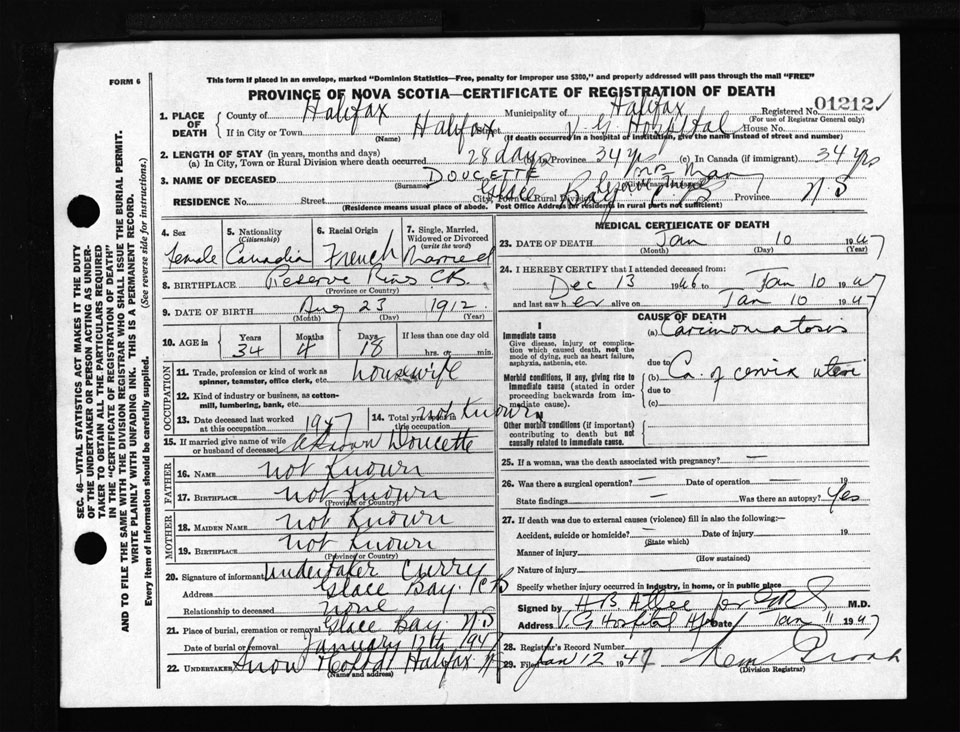 FORM 6
This form if placed in an envelope, marked "Dominion Statistics—Free, penalty for improper use $300," and properly addressed will pass through the mail "FREE"
PROVINCE OF NOVA SCOTIA—CERTIFICATE OF REGISTRATION OF DEATH
1. PLACE OF DEATH County of Halifax Municipality of Halifax Registered No. 01212
(For use of Registrar General only)
If in City or Town Halifax Street V G Hospital House No.
(Name) (If death occurred in a hospital or institution, give the name instead of street and number)
2. LENGTH OF STAY (in years, months and days)
(a) In City, Town or Rural Division where death occurred 28 days In Province 34 yrs (c) In Canada (if immigrant) 34 yrs
3. NAME OF DECEASED DOUCETTE Mrs Mary
(Surname)
RESIDENCE No. Street Glace Bay City, Town or Rural Division C B Province N S
(Residence means usual place of abode. Post Office Address for residents in rural parts not sufficient)
4. Sex Female
5. Nationality (Citizenship) Canadia
6. Racial Origin French
7. Single, Married, Widowed or Divorced (write the word) Married
8. BIRTHPLACE Reserve Mines C.B.
(Province or Country)
9. DATE OF BIRTH Aug 23 1912
(Month) (Day) (Year)
10. AGE in Years 34 Months 4 Days 18 If less than one day hrs. or min.
OCCUPATION
11. Trade, profession or kind of work as spinner, teamster, office clerk, etc. housewife
12. Kind of industry or business, as cotton-mill, lumbering, bank, etc.
13. Date deceased last worked at this occupation 1947
14. Total yrs. spent in this occupation not Known
15. If married give name of wife or husband of deceased Doucette
FATHER
16. NAME not Known
17. BIRTHPLACE not Known
(Province or Country)
MOTHER
18. MAIDEN NAME not Known
19. BIRTHPLACE not Known
(Province or Country)
20. Signature of informant Undertaker Curry
Address Glace Bay. C B
Relationship to deceased none
21. Place of burial, cremation or removal Glace Bay. N S
Date of burial or removal January 12th 1947
22. UNDERTAKER Snow Halifax N S
(Name and address)
MEDICAL CERTIFICATE OF DEATH
23. DATE OF DEATH Jan 10 1947
(Month) (Day) (Year)
24. I HEREBY CERTIFY that I attended deceased from:
Dec 13 1946 to Jan 10 1947
and last saw h er alive on Jan 10 1947
CAUSE OF DEATH
I
Immediate cause
Give disease, injury or complication which caused death, not the mode of dying, such as heart failure, asphyxia, asthenia, etc.
(a) Carcinomatosis
due to
Morbid conditions, if any, giving rise to immediate cause (stated in order proceeding backwards from immediate cause).
(b) Ca. of cervix uteri
due to
(c)
II
Other morbid conditions (if important) contributing to death but not causally related to immediate cause.
25. If a woman, was the death associated with pregnancy? —
26. Was there a surgical operation — Date of operation —
State findings — Was there an autopsy? Yes
27. If death was due to external causes (violence) fill in also the following:—
Accident, suicide or homicide? — Date of injury 19
(State which)
Manner of injury
(How sustained)
Nature of injury
Specify whether injury occurred in industry, in home, or in public place
Signed by H B Atlee M.D.
Address V. G Hospital Date Jan 11 1947
28. Registrar's Record Number
29. Filed Jan 12 1947
(Division Registrar)
SEC. 46—VITAL STATISTICS ACT MAKES IT THE DUTY OF THE UNDERTAKER OR PERSON ACTING AS UNDERTAKER TO OBTAIN ALL THE PARTICULARS REQUIRED IN THE "CERTIFICATE OF REGISTRATION OF DEATH" AND TO FILE THE SAME WITH THE DIVISION REGISTRAR WHO SHALL ISSUE THE BURIAL PERMIT.
WRITE PLAINLY WITH UNFADING INK. THIS IS A PERMANENT RECORD.
Every item of information should be carefully supplied. (See reverse side for instructions.)